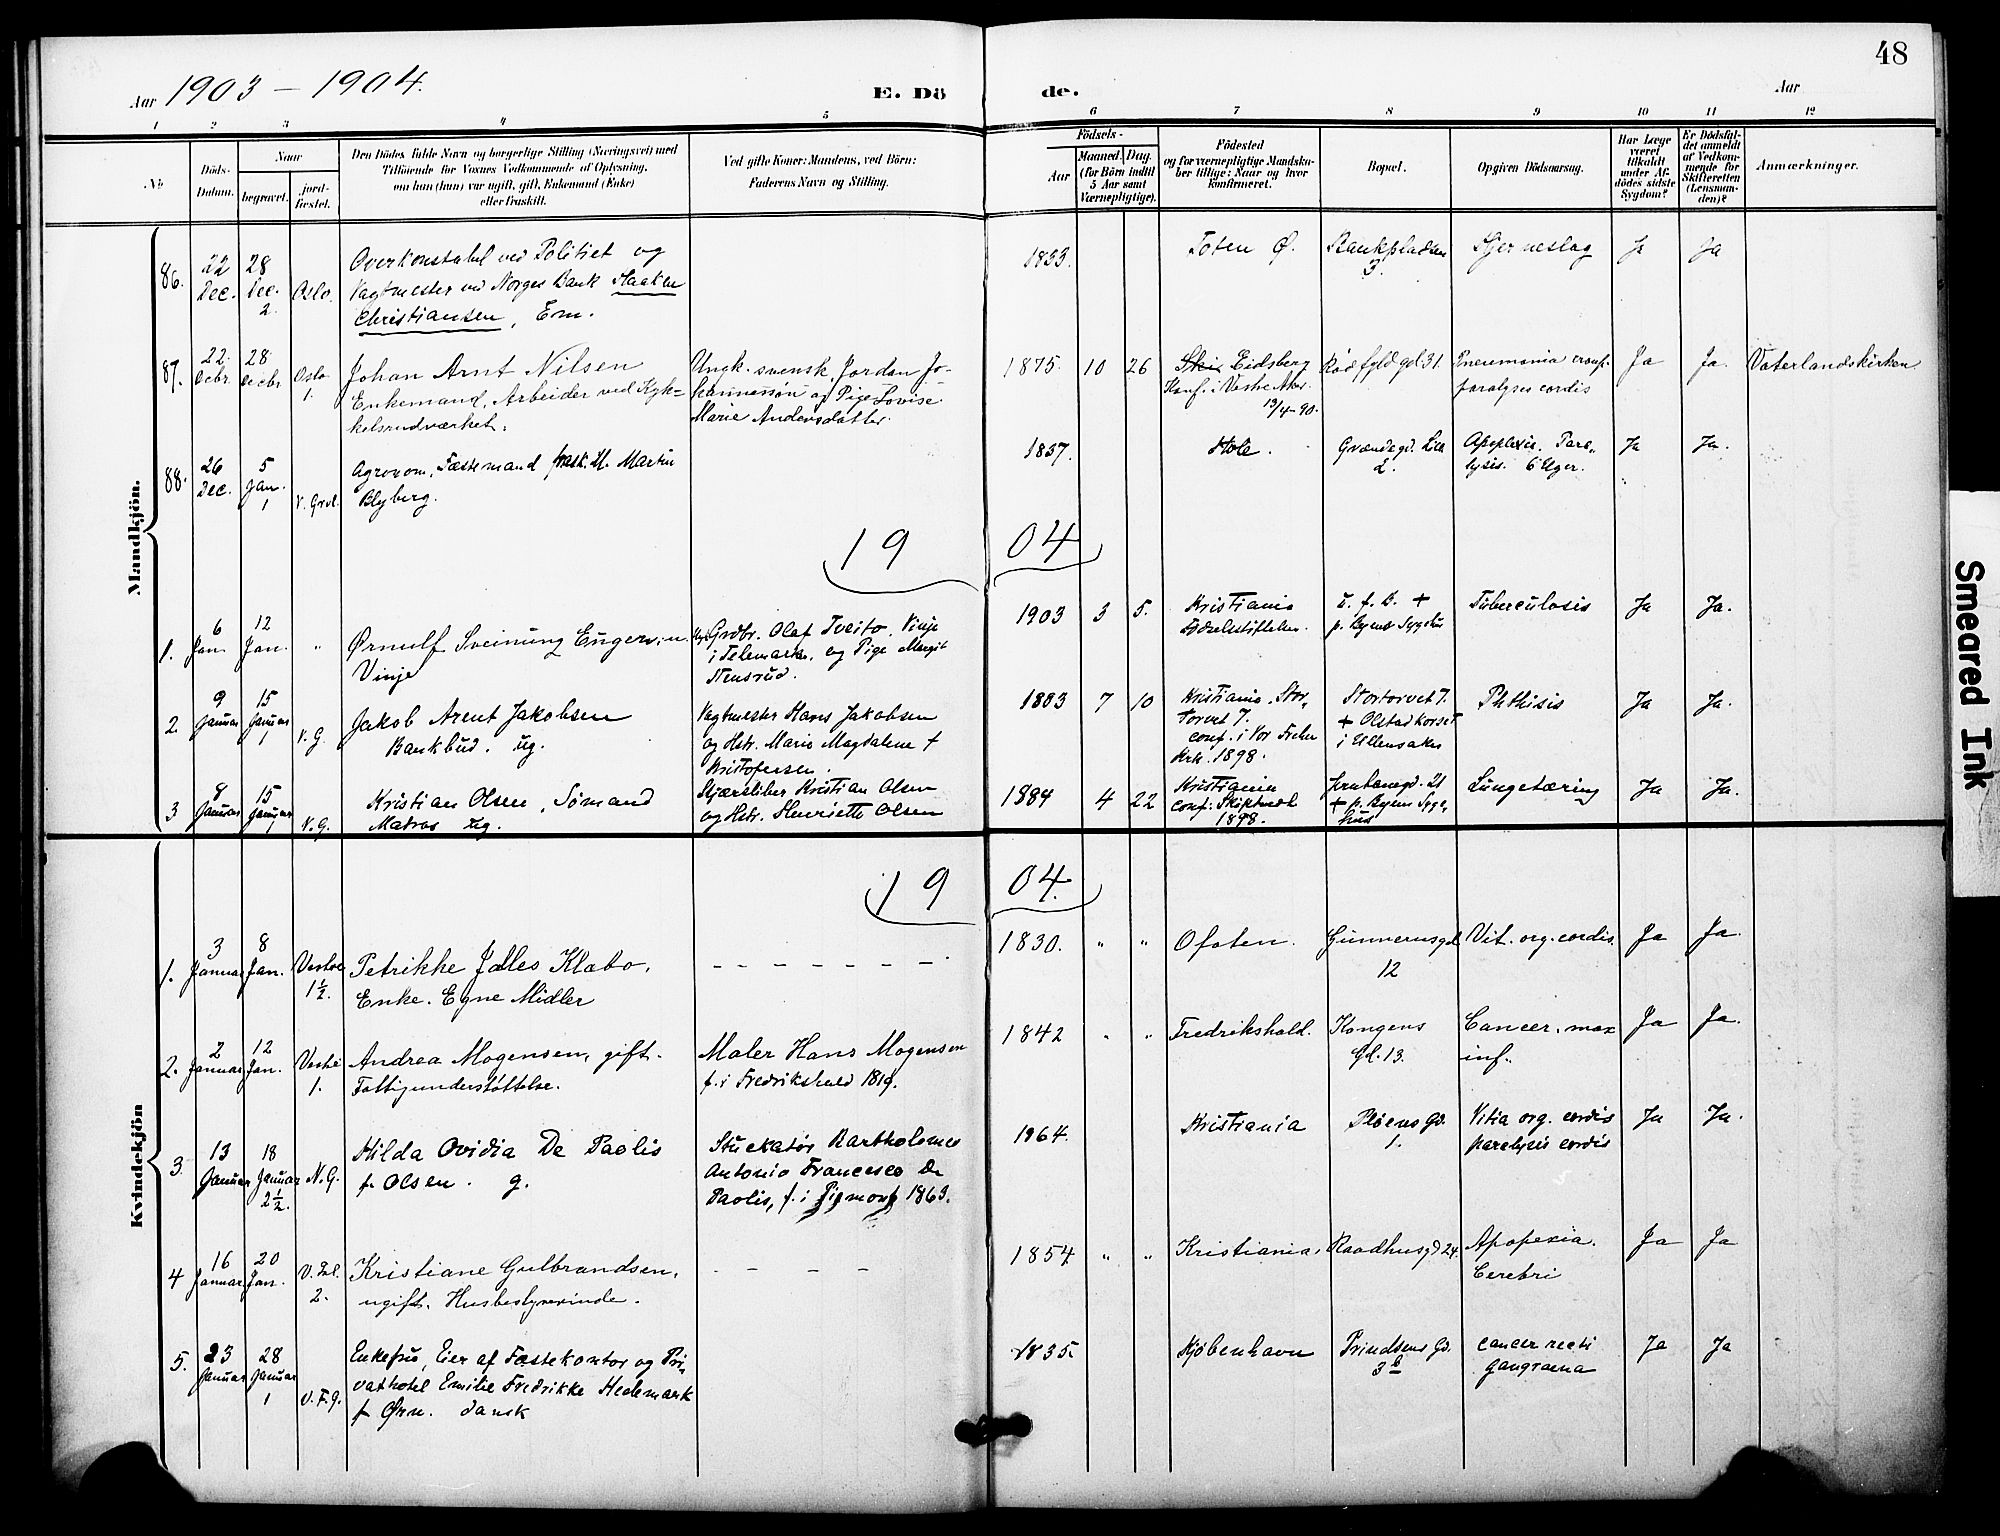 48
Aar 1903 – 1904.
E. Dö de.
Aar
1 2 3 4 5 6 7 8 9 10 11 12
No.
Döds-
Datum.
Naar
begravet.
jord-
fæstet.
Den Dödes fulde Navn og borgerlige Stilling (Næringsvei) med
Tilföiende for Voxnes Vedkommende af Oplysning,
om han (hun) var ugift, gift, Enkemand (Enke)
eller fraskilt.
Ved gifte Koner: Mandens, ved Börn:
Faderens Navn og Stilling.
Födsels-
Aar
Maaned. Dag.
(for Börn indtil
5 Aar samt
Værnepligtige).
Födested
og for værnepligtige Mandska-
ber tillige: Naar og hvor
konfirmeret.
Bopæl.
Opgiven Dödsaarsag.
Har Læge
været
tilkaldt
under Af-
dödes sidste
Sygdom?
Er Dödsfal-
det anmeldt
af Vedkom-
mende for
Skifteretten
(Lensman-
den)?
Anmærkninger.
Mandkjön.
86.
22
Dec.
28
Dec.
2.
Oslo.
Overkonstabel ved Politiet og
Vagtmester ved Norges Bank Haaken
Christiansen, Em.
1833.
Toten Ø.
Bankpladsen
3.
Hjerneslag
Ja
Ja
87.
22
Decbr.
28
Decbr.
Oslo
1.
Johan Arnt Nilsen
Enkemand, Arbeider ved Kyk-
kelsrudværket.
Ungk. svensk, Jordan Jo-
hannessøn og Pige Lovise
Marie Andersdatter.
1875. 10 26
Skie. Eidsberg
Konf. i Vestre Aker
13/4-90.
Rødfyldgd. 31.
Pneumonia croup.
paralyses cordis
Ja
Ja.
Vaterlandskirken
88.
26
Dec.
5
Jan.
1
V. Gravl.
Agronom, Fæstemand frask. H. Martin
Blyberg.
1837.
Hole.
Grændsegd. Lille
2.
Apoplexis. Para-
lysis. 6 Uger.
Ja
Ja.
19 04
1.
6
Jan.
12
Jan.
"
Ørnulf Sveinung Enger, u.
Vinje
Grdbr. Olaf Tveito. Vinje
i Telemarken, og Pige Margit
Stensrud.
1903 3 5.
Kristiania
Fødselsstiftelsen.
u. f. B. +
p. Byens Sygehus
Tuberculosis
Ja
Ja.
2.
9
Januar
15
Januar
1
V. G.
Jakob Arent Jakobsen
Bankbud. ug.
Vagtmester Hans Jakobsen
og Hstr. Marie Magdalene f
Kristofersen.
1883 7 10
Kristiania. Stor-
torvet 7.
conf. i Vor Frelser
Krk. 1898.
Stortorvet 7.
+ Olstadkorset
i Ullensaker
Phthisis
Ja
Ja.
3
8
Januar
15
Januar
V. G.
Kristian Olsen, Sømand
Matros ug.
Skjærsliber Kristian Olsen
og Hstr. Henriette Olsen
1884 4 22
Kristiania
conf. Skiptvedt
1898.
Jernbanegd. 21
+ p. Byens Syge-
hus
Lungetæring
Ja
Ja.
Kvindekjön
19 04.
1.
3
Januar
8
Jan.
Vestre
1½.
Petrikke Jalles Klabo,
Enke. Egne Midler
– – – – – – –
1830. " "
Ofoten.
Gunnerusgd
12
Vit. org. cordis.
Ja
Ja.
2.
2
Januar
12
Jan.
Vestre
1.
Andrea Mogensen, gift.
Fattigunderstøttelse.
Maler Hans Mogensen
f. i Fredrikshald 1819.
1842 " "
Fredrikshald.
Kongens
Gd. 13.
Cancer. max
inf.
Ja
Ja.
3
13
Januar
18
Januar
2½.
N. G.
Hilda Ovidia De Paolis
f. Olsen. g.
Stuckatør Bartholomeo
Antonio Francesco De
Paolis, f. i Pigmont 1863.
1864.
Kristiania
Pløens Gd.
1.
Vitia org. cordis
paralysis cordis
Ja
Ja.
4
16
Januar
20
Jan.
2.
Kristiane Gulbrandsen,
ugift. Husbestyrerinde.
– – – –
1854. " "
Kristiania.
Raadhusgd 24.
Apopexia.
Cerebri
Ja
Ja
5.
23
Januar
28
Januar
1
V. F. G.
Enkefru, Eier af Fæstekontor og Pri-
vathotel Emilie Fredrikke Hedemark
f Ørn. dansk
1835.
Kjøbenhavn
Prindsens Gd.
3 b
cancer recti
gangraena
Ja
Ja
Smeared Ink